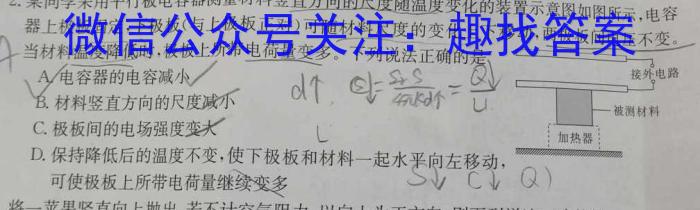 2. 某同学采用平行板电容器测量材料竖直方向的尺度随温度变化的装置示意图如图所示，电容
器上 可随材料尺度的变化 不变。
微信公众号关注：趣找答案
当材料温度降低时，极板上所带电荷量变多。下列说法正确的是
A. 电容器的电容减小
B. 材料竖直方向的尺度减小
C. 极板间的电场强度变大
D. 保持降低后的温度不变，使下极板和材料一起水平向左移动，
可使极板上所带电荷量继续变多
接外电路
被测材料
加热器
d↑
U
S↓ C↓ Q
将一苹果竖直向上抛出，若不计空气阻力，以向上为正方向，则下列